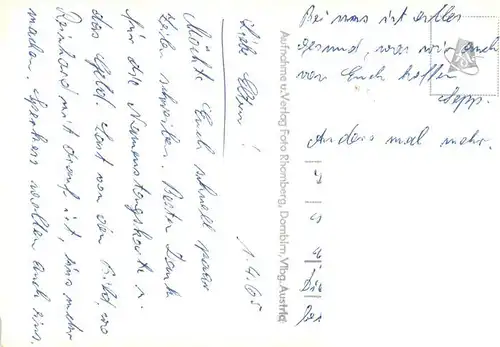 1.4.65
Liebe Eltern!
Möchte Euch schnell paar
Zeilen schreiben. Besten Dank
für die Namenstagskarte u.
das Geld. Hast von den Bild, wo
Reinhard mit drauf ist, eins mehr
machen. Speckers wollten auch eins.
Bei uns ist alles
gesund, was wir auch
von Euch hoffen
Sepp.
Anders mal mehr.
Aufnahme u. Verlag Foto Rhomberg, Dornbirn, Vlbg. Austria